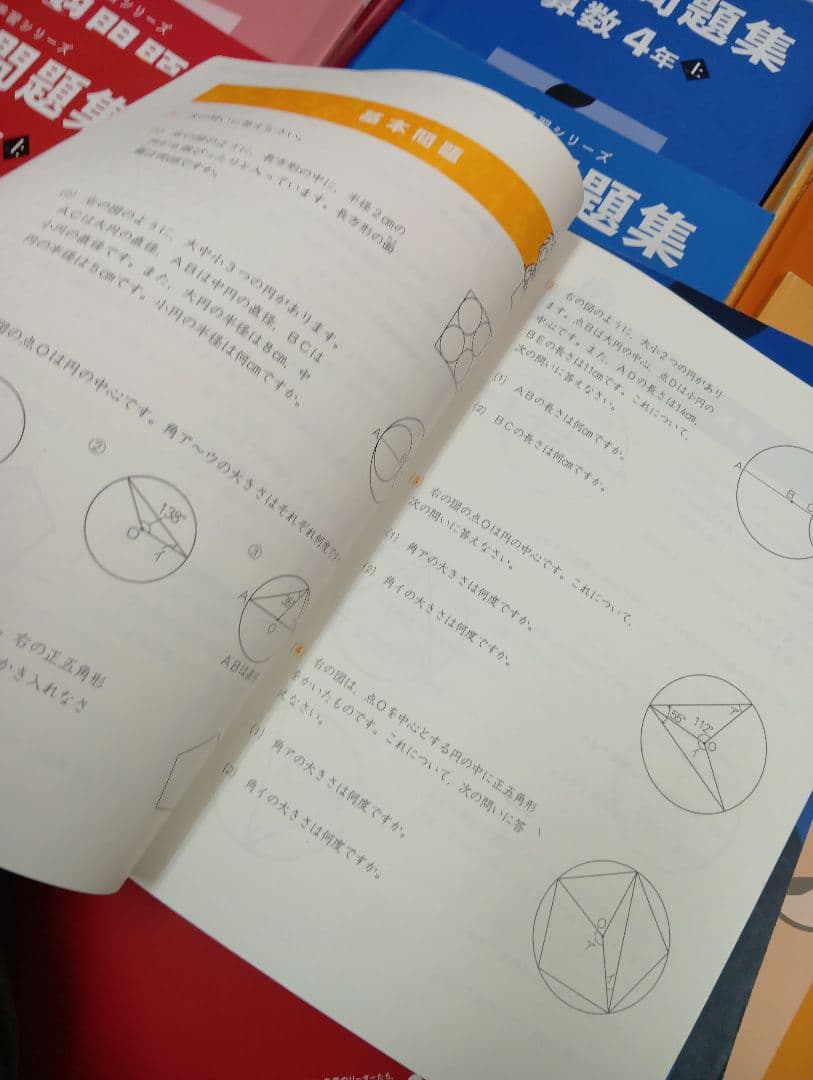 習シリーズ
問題集
上
問題集
算数4年 上
習シリーズ
題集
基本問題
次の問いに答えなさい。
右の図のように、長方形の中に、半径2cmの
円が6個ぴったりと入っています。長方形の面
積は何cm²ですか。
(2) 右の図のように、大中小3つの円があります。
ACは大円の直径、ABは中円の直径、BCは
小円の直径です。また、大円の半径は8cm、中
円の半径は5cmです。小円の半径は何cmですか。
図の点Oは円の中心です。角ア〜ウの大きさはそれぞれ何度です
②
138°
O
イ
③
A
35°
O
ABは直径
右の正五角形
かき入れなさ
A
右の図のように、大小2つの円があり
ます。点Bは大円の中心、点Dは小円の
中心です。また、ADの長さは14cm、
BEの長さは11cmです。これについて、
次の問いに答えなさい。
(1) ABの長さは何cmですか。
(2) BCの長さは何cmですか。
A
B
C
3
右の図の点Oは円の中心です。これについて、
次の問いに答えなさい。
(1) 角アの大きさは何度ですか。
(2) 角イの大きさは何度ですか。
ア
55°
112°
イ
O
4
右の図は、点Oを中心とする円の中に正五角形
をかいたものです。これについて、次の問いに答
えなさい。
(1) 角アの大きさは何度ですか。
(2) 角イの大きさは何度ですか。
O
ア
イ